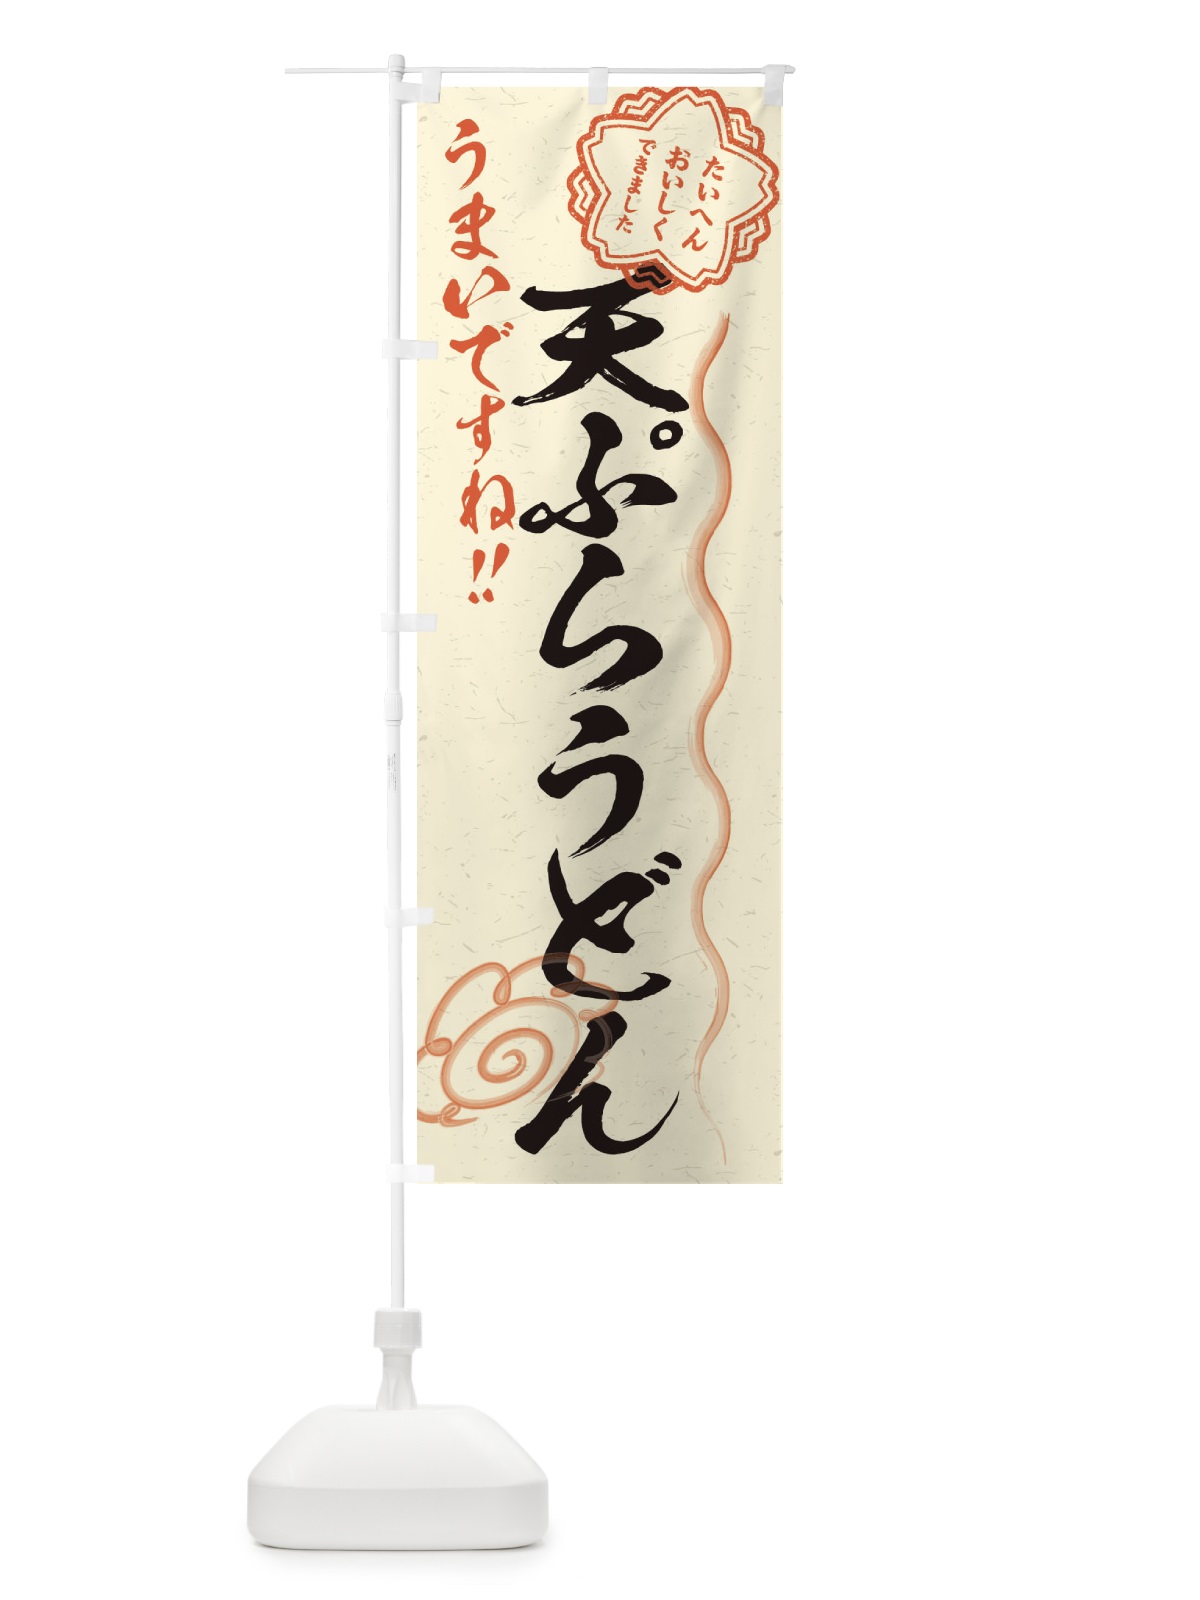 たいへん
おいしく
できました
天ぷらうどん
うまいですね!!